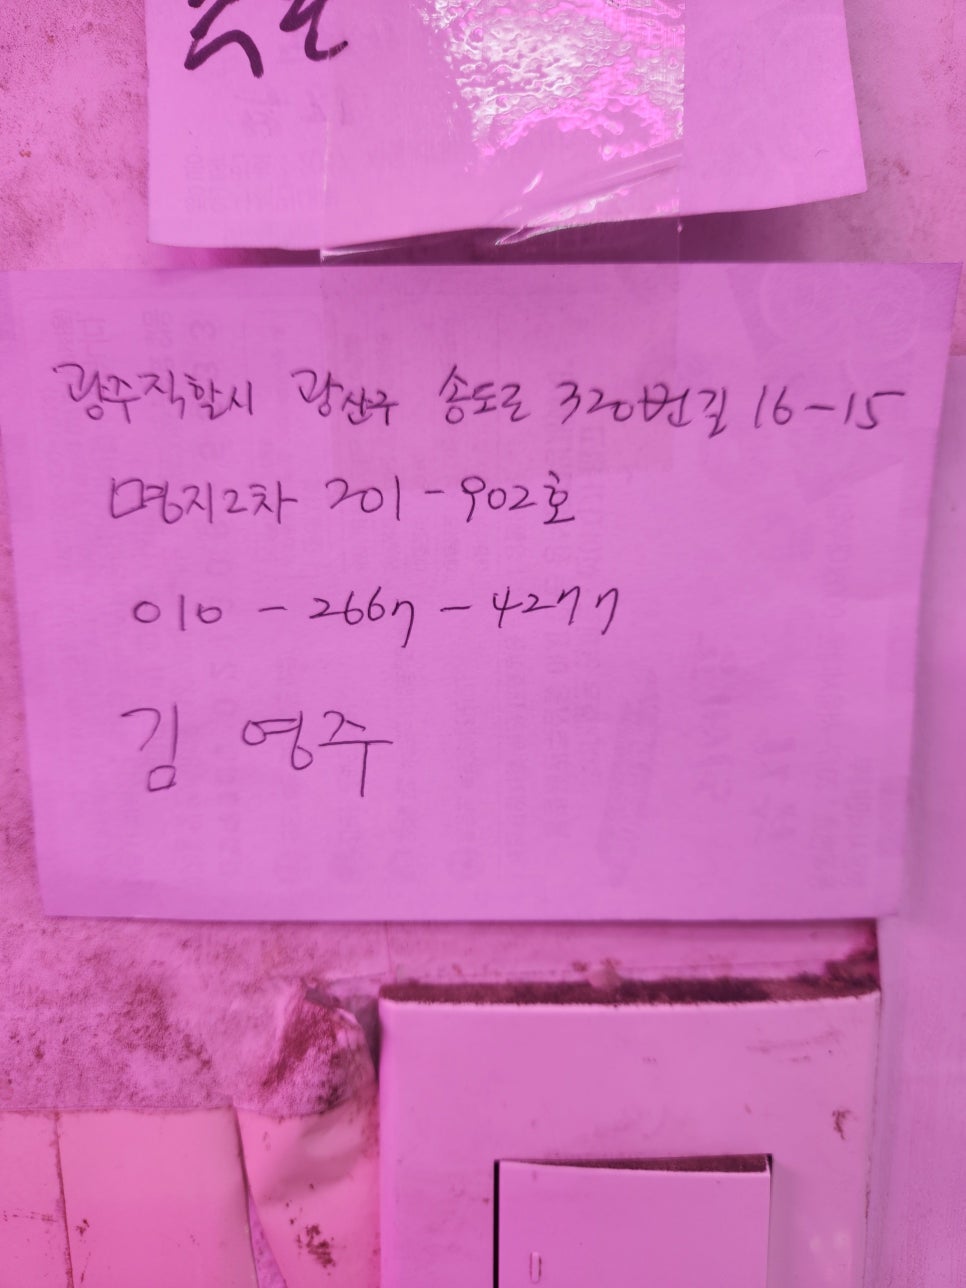 광주직할시 광산구 송도로 320번길 16-15
명지2차 201-902호
010-2667-4277
김영주